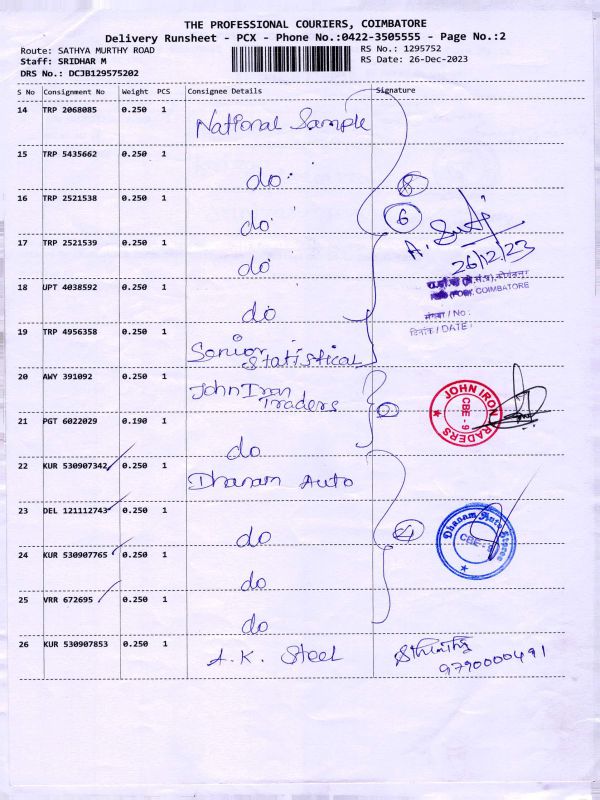 THE PROFESSIONAL COURIERS, COIMBATORE
Delivery Runsheet - PCX - Phone No.:0422-3505555 - Page No.:2
Route: SATHYA MURTHY ROAD
RS No.: 1295752
Staff: SRIDHAR M
RS Date: 26-Dec-2023
DRS No.: DCJB129575202
S No Consignment No Weight PCS Consignee Details Signature
14 TRP 2068085 0.250 1 National Sample
15 TRP 5435662 0.250 1 do
8
16 TRP 2521538 0.250 1 do
6
A.
26/12/23
17 TRP 2521539 0.250 1 do
COIMBATORE
18 UPT 4038592 0.250 1 do
संख्या / No :
दिनांक / DATE :
19 TRP 4956358 0.250 1 Senior Statistical
20 AWY 391092 0.250 1 John Iron Traders
2
JOHN IRON TRADERS
CBE - 9
21 PGT 6022029 0.190 1 do
22 KUR 530907342 0.250 1 Dhanam Auto
23 DEL 121112743 0.250 1 do
4
Dhanam Auto Stores
CBE - 9
24 KUR 530907765 0.250 1 do
25 VRR 672695 0.250 1 do
26 KUR 530907853 0.250 1 A.K. Steel
9790000491